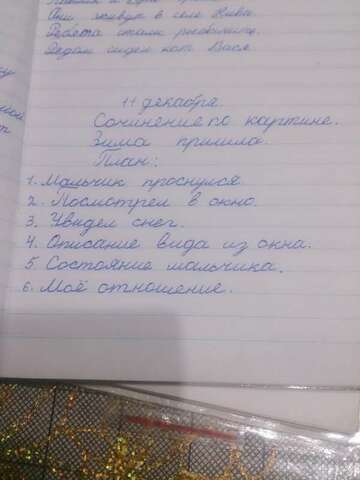 Они живут в селе
Ребята стали рисовать.
Рядом сидел кот Вася
11 декабря.
Сочинение по картине.
Зима пришла.
План:
1. Мальчик проснулся.
2. Посмотрел в окно.
3. Увидел снег.
4. Описание вида из окна.
5. Состояние мальчика.
6. Моё отношение.